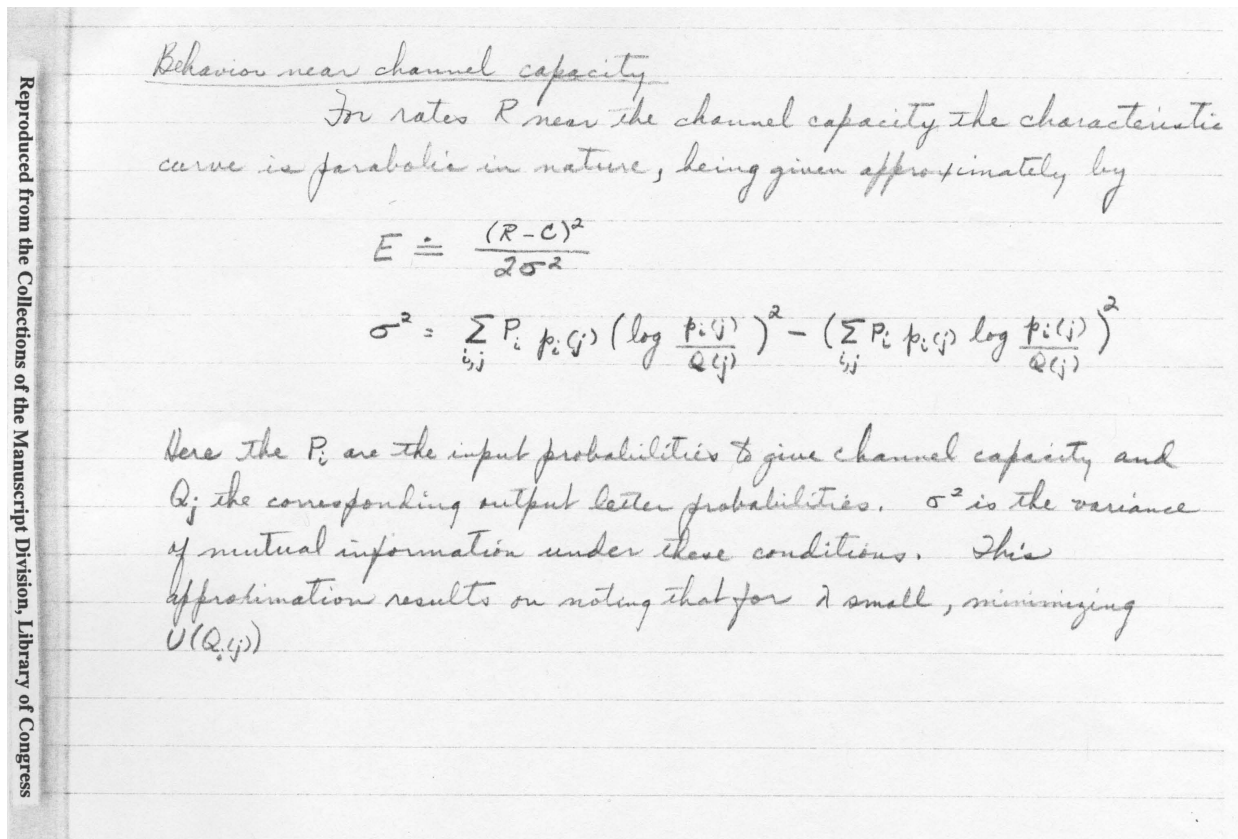 Reproduced from the Collections of the Manuscript Division, Library of Congress
Behavior near channel capacity
For rates R near the channel capacity the characteristic
curve is parabolic in nature, being given approximately by
E ≐ (R-C)² / 2σ²
σ² = Σ_{i,j} P_i p_i(j) (log p_i(j)/Q(j))² - (Σ_{i,j} P_i p_i(j) log p_i(j)/Q(j))²
Here the P_i are the input probabilities to give channel capacity and
Q_j the corresponding output letter probabilities. σ² is the variance
of mutual information under these conditions. This
approximation results on noting that for λ small, minimizing
U(Q_i(j))